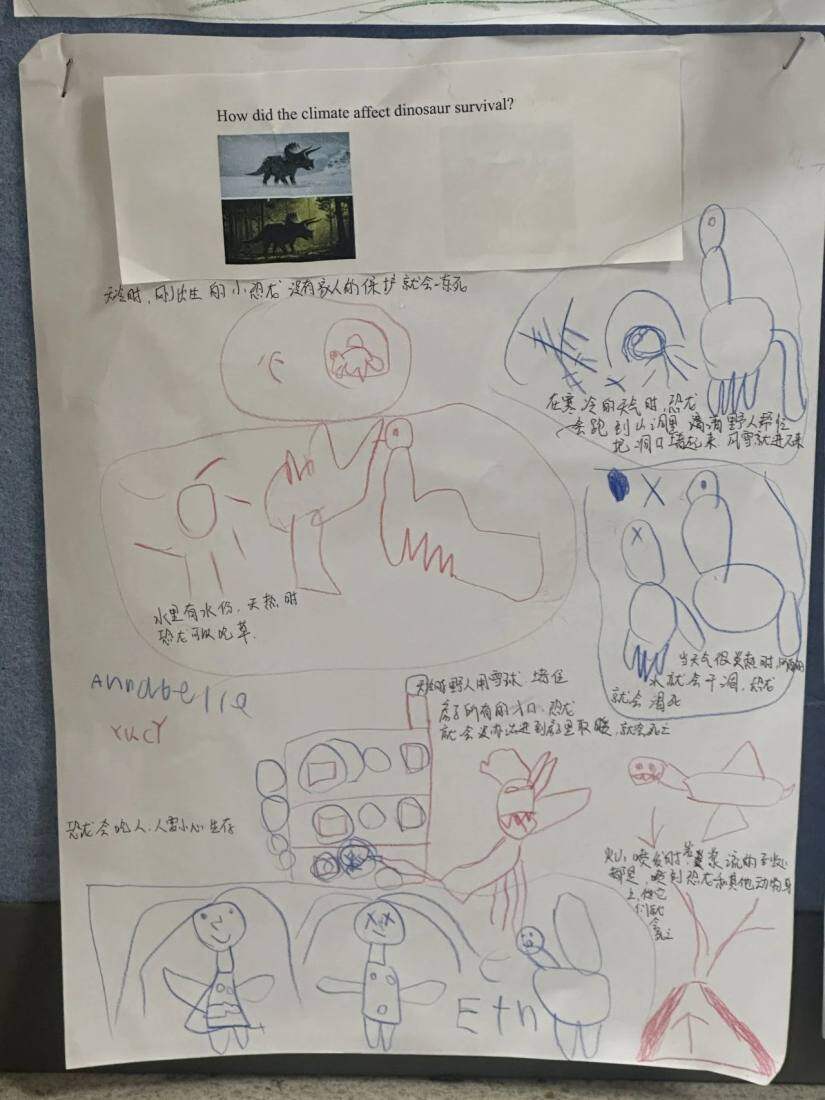 How did the climate affect dinosaur survival?
天冷时,刚出生的小恐龙没有家人的保护就会冻死
在寒冷的天气时,恐龙
会跑到山洞里 请野人帮忙
把洞口堵起来 风雪就进不来
水里有水份,天热时
恐龙可以吃草.
当天气很炎热时,
水就会干涸,恐龙
就会渴死
Annabelle
YucY
天冷时野人用雪球 堵住
房子所有的门口,恐龙
就会没办法进到房里取暖,就会死亡
恐龙会吃人,人要小心生存
火山喷发时岩浆流的到处
都是,喷到恐龙和其他动物身
上,他它
们就
会死亡
Eth